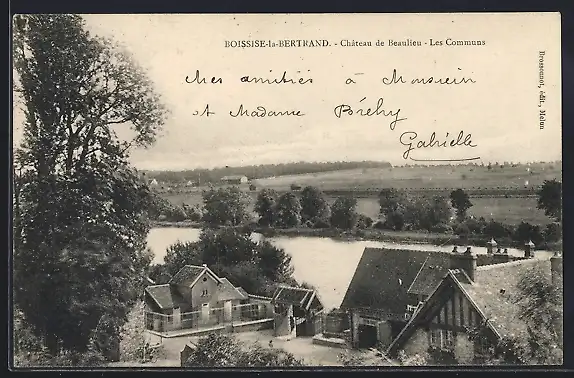 BOISSISE-la-BERTRAND. - Château de Beaulieu - Les Communs
Mes amitiés à Monsieur
et Madame Bréhy
Gabrielle
Brossonnot, édit., Melun